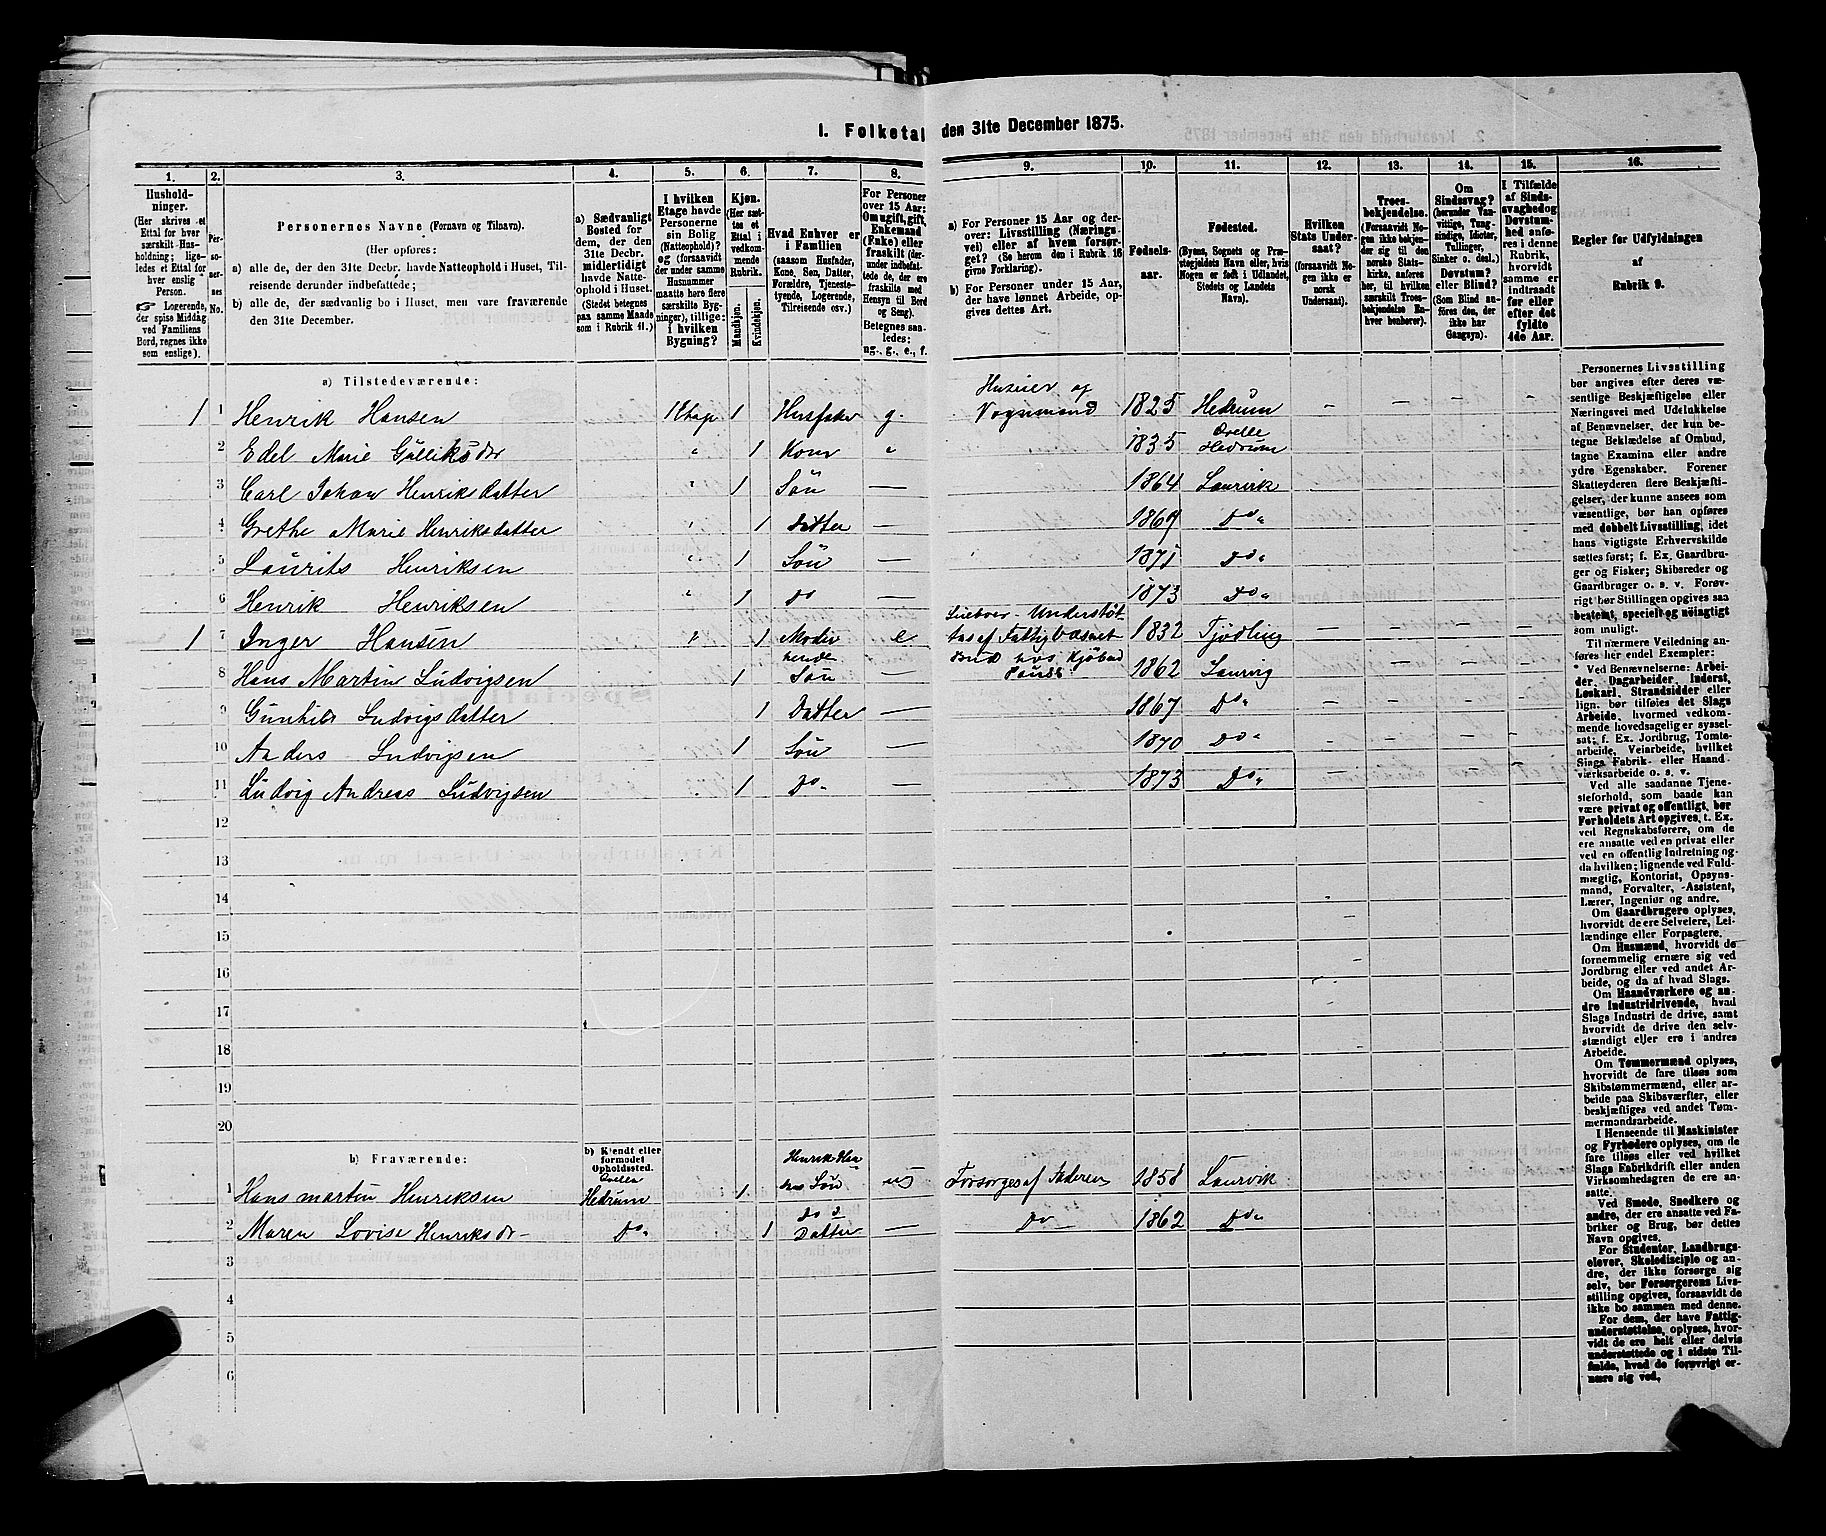 I. Folketal den 31te December 1875.
1. 2. 3. 4. 5. 6. 7. 8. 9. 10. 11. 12. 13. 14. 15. 16.
Hushold-
ninger.
(Her skrives et
Ettal for hver
særskilt Hus-
holdning; lige-
ledes et Ettal for
hver enslig
Person.
☞ Logerende,
der spise Middag
ved Familiens
Bord, regnes ikke
som enslige).
Per-
so-
ner-
nes
No.
Personernes Navne (Fornavn og Tilnavn).
(Her opføres:
a) alle de, der den 31te Decbr. havde Natteophold i Huset, Til-
reisende derunder indbefattede;
b) alle de, der sædvanlig bo i Huset, men vare fraværende
den 31te December.
a) Sædvanligt
Bosted for
dem, der den
31te Decbr.
midlertidigt
havde Natte-
ophold i Huset.
(Stedet betegnes
paa samme Maade
som i Rubrik 11.)
I hvilken
Etage havde
Personerne
sin Bolig
(Natteophold)?
og (forsaavidt
der under samme
Husnummer
maatte høre flere
særskilte Byg-
ninger), tillige:
I hvilken
Bygning?
Kjøn.
(Her sæt-
tes et
Ettal i
vedkom-
mende
Rubrik.
Mandkjøn.
Kvindekjøn.
Hvad Enhver er
i Familien
(saasom Husfader,
Kone, Søn, Datter,
Forældre, Tjeneste-
tyende, Logerende,
Tilreisende osv.)
For Personer
over 15 Aar:
Om ugift, gift,
Enkemand
(Enke) eller
fraskilt
(under fraskilte
indbefat-
tede de, der ere
fraskilte med
Hensyn til Bord
og Seng).
Betegnes saa-
ledes:
ug., g., e., f.
a) For Personer 15 Aar og der-
over: Livsstilling (Nærings-
vei) eller af hvem forsør-
get? (Se herom den i Rubrik 16
givne Forklaring).
b) For Personer under 15 Aar,
der have lønnet Arbeide, op-
gives dettes Art.
Fødsels-
aar.
Fødested.
(Byens, Sognets og Præ-
stegjeldets Navn eller, hvis
Nogen er født i Udlandet,
Stedets og Landets
Navn).
Hvilken
Stats Under-
saat?
(forsaavidt No-
gen ikke er
norsk
Undersaat).
Troes-
bekjendelse.
(Forsaavidt No-
gen ikke bekjen-
der sig til den
norske Stats-
kirke, anføres
her, til hvilken
særskilt Troes-
bekjendelse En-
hver henhører).
Om
Sindssvag?
(herunder Van-
vittige, Tung-
sindige, Idioter,
Tullinger,
Sinker o. desl.)
Døvstum?
eller Blind?
(Som Blind an-
føres den, der
ikke har
Gangsyn).
I Tilfælde
af Sinds-
svaghed og
Døvstum-
hed anfø-
res i denne
Rubrik,
hvorvidt
samme er
indtraadt
før eller
efter det
fyldte
4de Aar.
Regler for Udfyldningen
af
Rubrik 9.
a) Tilstedeværende:
1 1 Henrik Hansen 1 Etage 1 Husfader g. Huseier og Vognmand 1825 Hedrum – – – –
2 Edel Marie Gulliksdr " 1 Kone " 1835 Qvelle Hedrum
3 Carl Johan Henriksdatter " 1 Søn 1864 Laurvik
4 Grethe Marie Henriksdatter " 1 Datter — 1869 Do "
5 Laurits Henriksen " 1 Søn — 1871 Do "
6 Henrik Henriksen " 1 do — 1873 Do "
1 7 Inger Hansen " 1 Moder e Understøt-
tes af Fattigvæsenet 1832 Tjødling
8 Hans Martin Ludvigsen 1 hendes Søn — Bud hos 1862 Laurvig
9 Gunhild Ludvigsdatter 1 Datter — 1867 Do "
10 Anders Ludvigsen 1 Søn — 1870 Do "
11 Ludvig Andreas Ludvigsen 1 Do " — 1873 Do "
12
13
14
15
16
17
18
19
20
b) Fraværende:
b) Kjendt eller
formodet
Opholdssted.
1 Hans Martin Henriksen Qvelle Hedrum 1 Henrik Han
sens Søn ug Forsørges af Faderen 1858 Laurvik
2 Maren Lovise Henriksdr– Do " 1 do s Datter — Do 1862 Do "
3
4
5
6
Personernes Livsstilling
bør angives efter deres væ-
sentlige Beskjæftigelse eller
Næringsvei med Udelukkelse
af Benævnelser, der kun be-
tegne Beklædelse af Ombud,
tagne Examina eller andre
ydre Egenskaber. Forener
Skatteyderen flere Beskjæfti-
gelser, der kunne ansees som
væsentlige, bør han opføres
med dobbelt Livsstilling, idet
hans vigtigste Erhvervskilde
sættes først; f. Ex. Gaardbru-
ger og Fisker; Skibsreder og
Gaardbruger o. s. v. Forøv-
rigt bør Stillingen opgives saa
bestemt, specielt og nøiagtigt
som muligt.
Til nærmere Veiledning an-
føres her endel Exempler:
Ved Benævnelserne: Arbei-
der, Dagarbeider, Inderst,
Løskarl, Strandsidder eller
lign. bør tilføies det Slags
Arbeide, hvormed vedkom-
mende hovedsagelig er syssel-
sat; f. Ex. Jordbrug, Tomte-
arbeide, Veiarbeide, hvilket
Slags Fabrik- eller Haand-
værksarbeide o. s. v.
Ved alle saadanne Tjene-
steforhold, som baade kan
være privat og offentligt, bør
Forholdets Art opgives, t. Ex.
ved Regnskabsførere, om de
ere ansatte ved en privat eller
ved en offentlig Indretning og
da hvilken; lignende ved Fuld-
mægtig, Kontorist, Opsyns-
mand, Forvalter, -Assistent,
Lærer, Ingeniør og andre.
Om Gaardbrugere oplyses,
hvorvidt de ere Selveiere, Lei-
lændinge eller Forpagtere.
Om Husmænd, hvorvidt de
fornemmelig ernære sig ved
Jordbrug eller ved andet Ar-
beide, og da af hvad Slags.
Om Haandværkere og an-
dre Industridrivende, hvad
Slags Industri de drive, samt
hvorvidt de drive den selv-
stændigt eller ere i andres
Arbeide.
Om Tømmermænd oplyses,
hvorvidt de fare tilsøs som
Skibstømmermænd, eller ar-
beide paa Skibsværfter, eller
beskjæftiges ved andet Tøm-
mermandsarbeide.
I Henseende til Maskinister
og Fyrbødere oplyses, om de
fare tilsøs eller ved hvilket
Slags Fabrikdrift eller anden
Virksomhedsgren de ere an-
satte.
Ved Smede, Snedkere og
andre, der ere ansatte ved Fa-
briker og Brug, bør dettes
Navn opgives.
For Studenter, Landbrugs-
elever, Skoledisciple og an-
dre, der ikke forsørge sig
selv, bør Forsørgerens Livs-
stilling opgives, forsaavidt de
ikke bo sammen med denne.
For dem, der have Fattig-
understøttelse, oplyses, hvor-
vidt de ere helt eller delvis
understøttede og i sidste Til-
fælde, hvad de forøvrigt er-
nære sig ved.